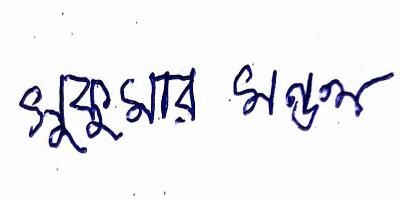 সুকুমার মণ্ডল